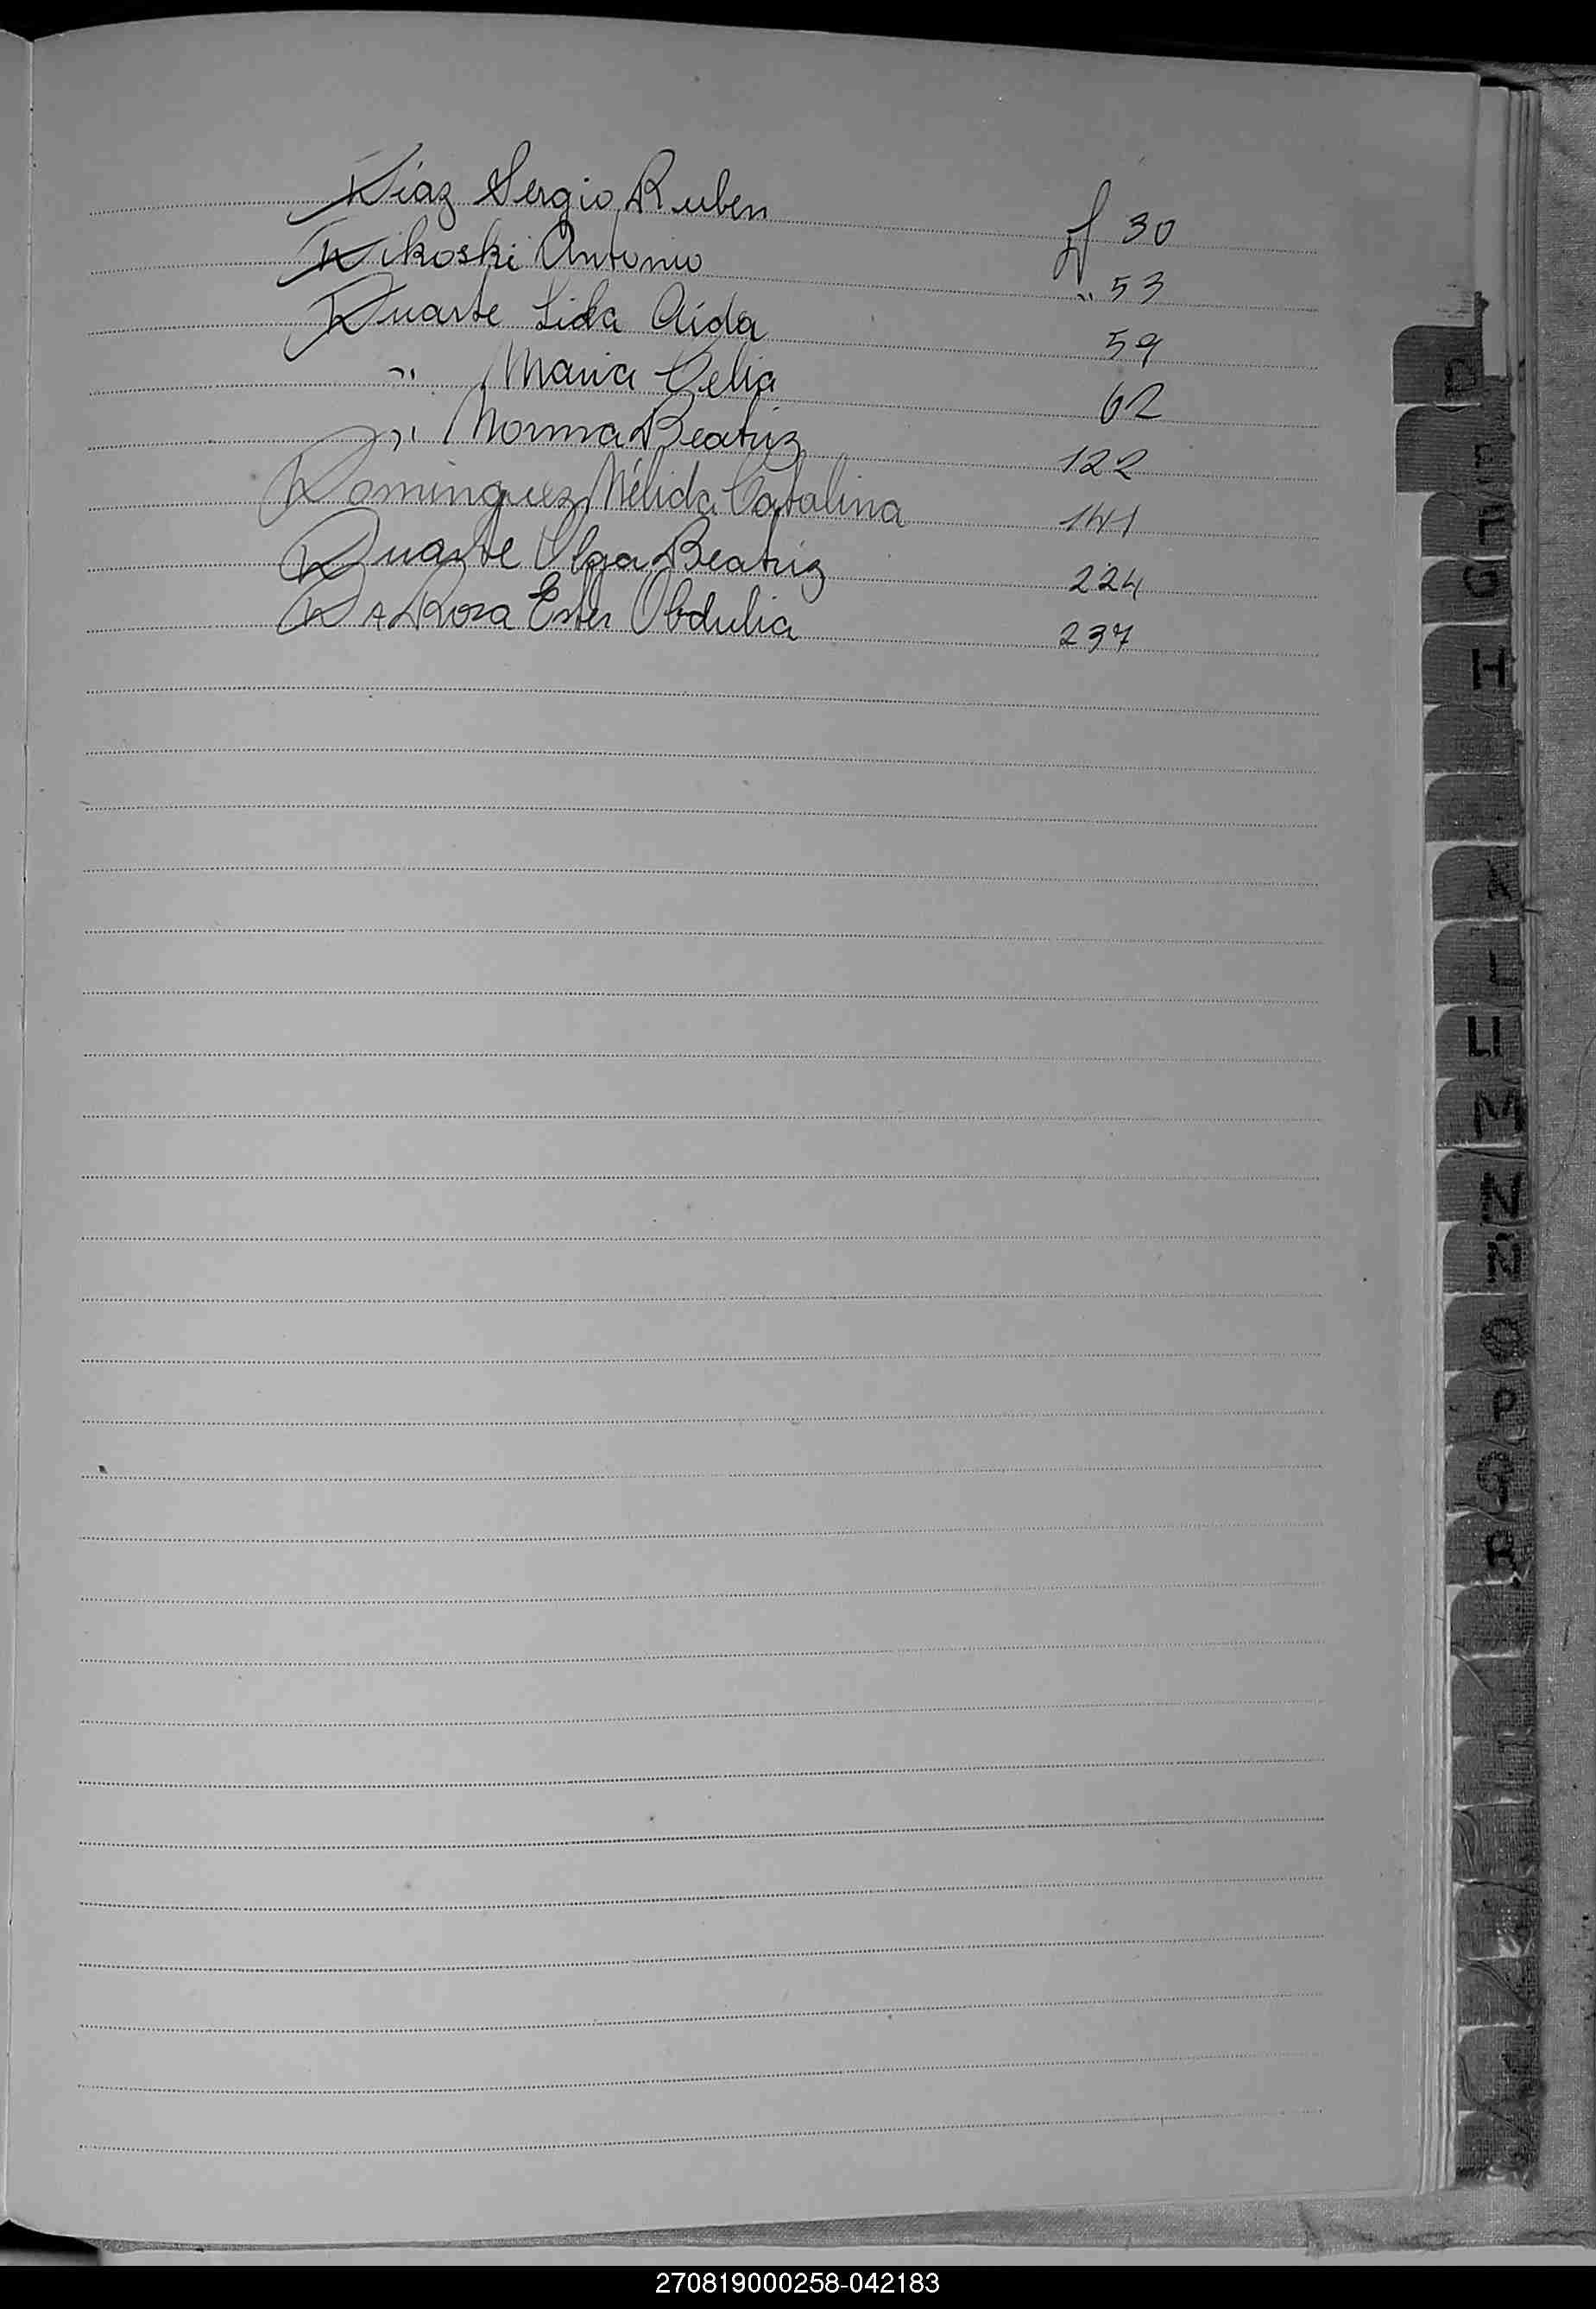 Diaz Sergio Ruben f 30
Dikoski Antonio " 53
Duarte Lida Aida 59
" Maria Celia 62
" Norma Beatriz 122
Dominguez Nélida Catalina 141
Duarte Olga Beatriz 224
Da Rosa Ester Obdulia 237
D
E
F
G
H
K
L
LL
M
N
Ñ
O
P
Q
R
270819000258-042183